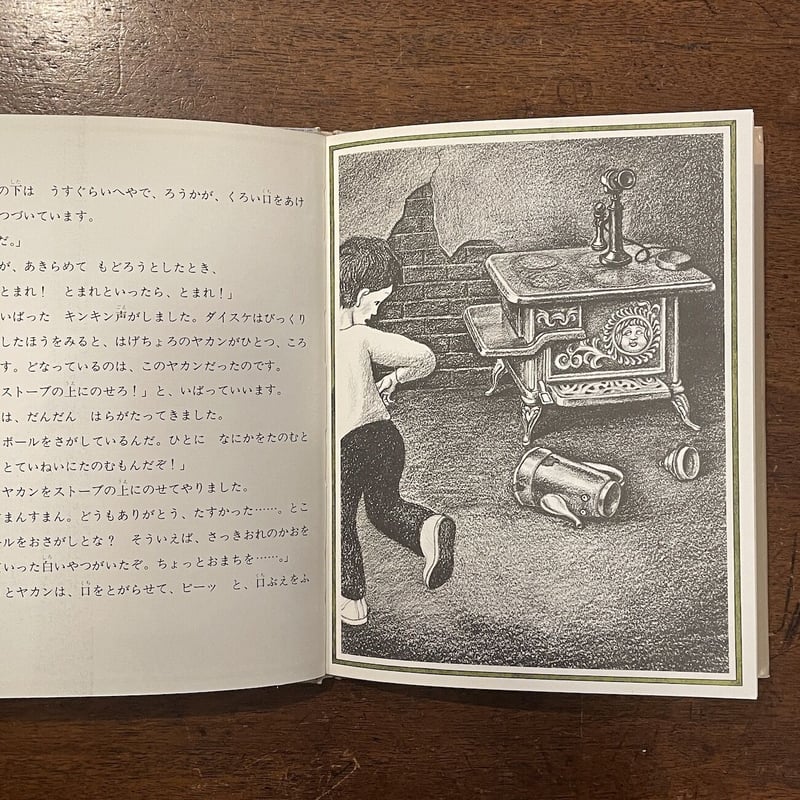 の下は　うすぐらいへやで、ろうかが、くろい口をあけ
つづいています。
だ。」
が、あきらめて　もどろうとしたとき、
とまれ！　とまれといったら、とまれ！」
いばった　キンキン声がしました。ダイスケはびっくり
したほうをみると、はげちょろのヤカンがひとつ、ころ
す。どなっているのは、このヤカンだったのです。
ストーブの上にのせろ！」と、いばっていいます。
は、だんだん　はらがたってきました。
ボールをさがしているんだ。ひとに　なにかをたのむと
とていねいにたのむもんだぞ！」
ヤカンをストーブの上にのせてやりました。
まんすまん。どうもありがとう、たすかった……。とこ
ールをおさがしとな？　そういえば、さっきおれのかおを
いった白いやつがいたぞ。ちょっとおまちを……。」
とヤカンは、口をとがらせて、ピーッ　と、口ぶえをふ